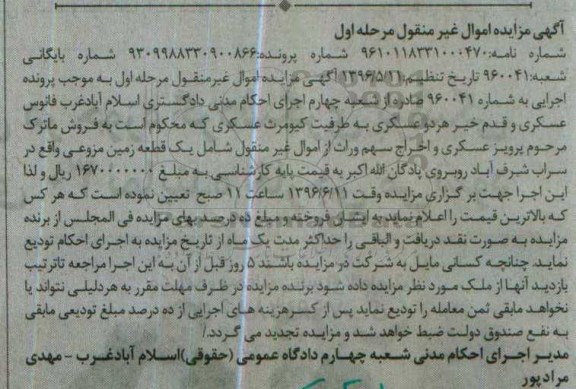 آگهی مزایده اموال غیر منقول مرحله اول
شماره نامه:۹۶۱۰۱۱۸۳۳۱۰۰۰۴۷۰ شماره پرونده:۹۳۰۹۹۸۸۳۳۰۹۰۰۸۶۶ شماره بایگانی
شعبه:۹۶۰۰۴۱ تاریخ تنظیم:۱۳۹۶/۵/۱۱ آگهی مزایده اموال غیرمنقول مرحله اول به موجب پرونده
اجرایی به شماره ۹۶۰۰۴۱ صادره از شعبه چهارم اجرای احکام مدنی دادگستری اسلام آبادغرب فانوس
عسکری و قدم خیر هردو عسکری به طرفیت کیومرث عسکری که محکوم است به فروش ماترک
مرحوم پرویز عسکری و اخراج سهم وراث از اموال غیر منقول شامل یک قطعه زمین مزوعی واقع در
سراب شرف آباد روبروی پادگان الله اکبر به قیمت پایه کارشناسی به مبلغ ۱۶۷۰۰۰۰۰۰۰ ریال و لذا
این اجرا جهت بر گزاری مزایده وقت ۱۳۹۶/۶/۱۱ ساعت ۱۱ صبح تعیین نموده است که هر کس
که بالاترین قیمت را اعلام نماید به ایشان فروخته و مبلغ ده درصد بهای مزایده فی المجلس از برنده
مزایده به صورت نقد دریافت و الباقی را حداکثر مدت یک ماه از تاریخ مزایده به اجرای احکام تودیع
نماید. چنانچه کسانی مایل به شرکت در مزایده باشند ۵ روز قبل از آن به این اجرا مراجعه تاترتیب
بازدید آنها از ملک مورد نظر مزایده داده شود برنده مزایده در ظرف مهلت مقرر به هردلیلی نتواند یا
نخواهد مابقی ثمن معامله را تودیع نماید پس از کسرهزینه های اجرایی از ده درصد مبلغ تودیعی مابقی
به نفع صندوق دولت ضبط خواهد شد و مزایده تجدید می گردد./
مدیر اجرای احکام مدنی شعبه چهارم دادگاه عمومی (حقوقی)اسلام آبادغرب – مهدی
مرادپور